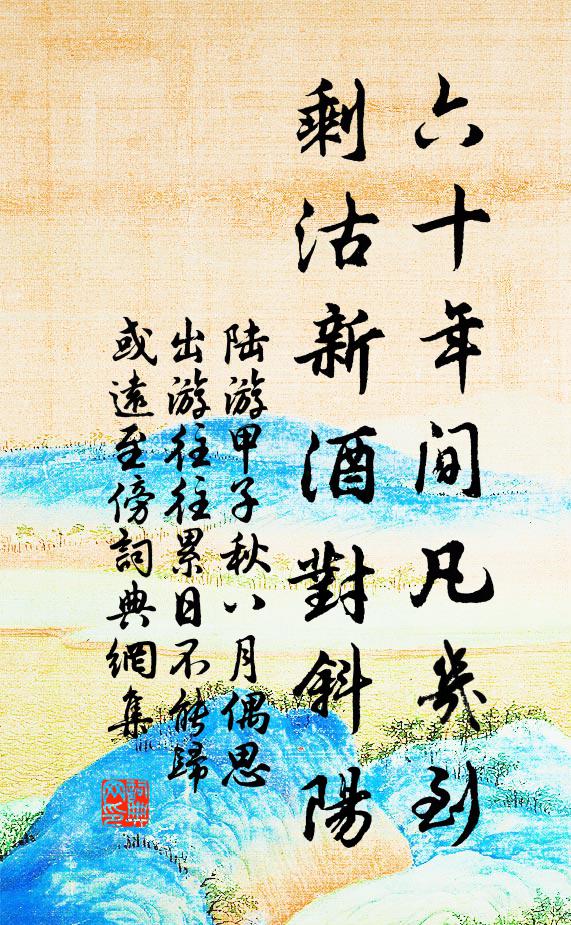 六十年间凡幾到
剩沽新酒對斜陽
陆游甲子秋八月偶思
出游往往累日不能歸
或遠至傍詞典網集